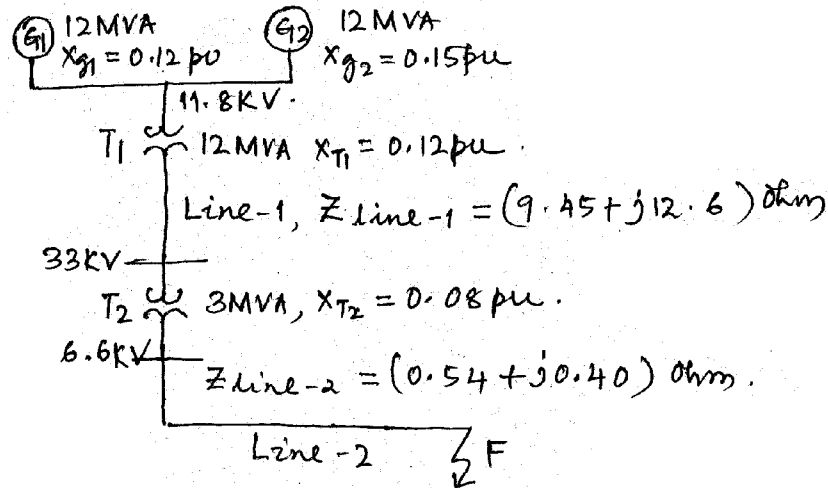 G1 12MVA G2 12MVA
Xg1 = 0.12 pu Xg2 = 0.15pu
11.8KV.
T1 12MVA XT1 = 0.12pu.
Line-1, Z line-1 = (9.45+j12.6) ohm
33KV
T2 3MVA, XT2 = 0.08 pu.
6.6KV
Z line-2 = (0.54+j0.40) ohm.
Line-2 F